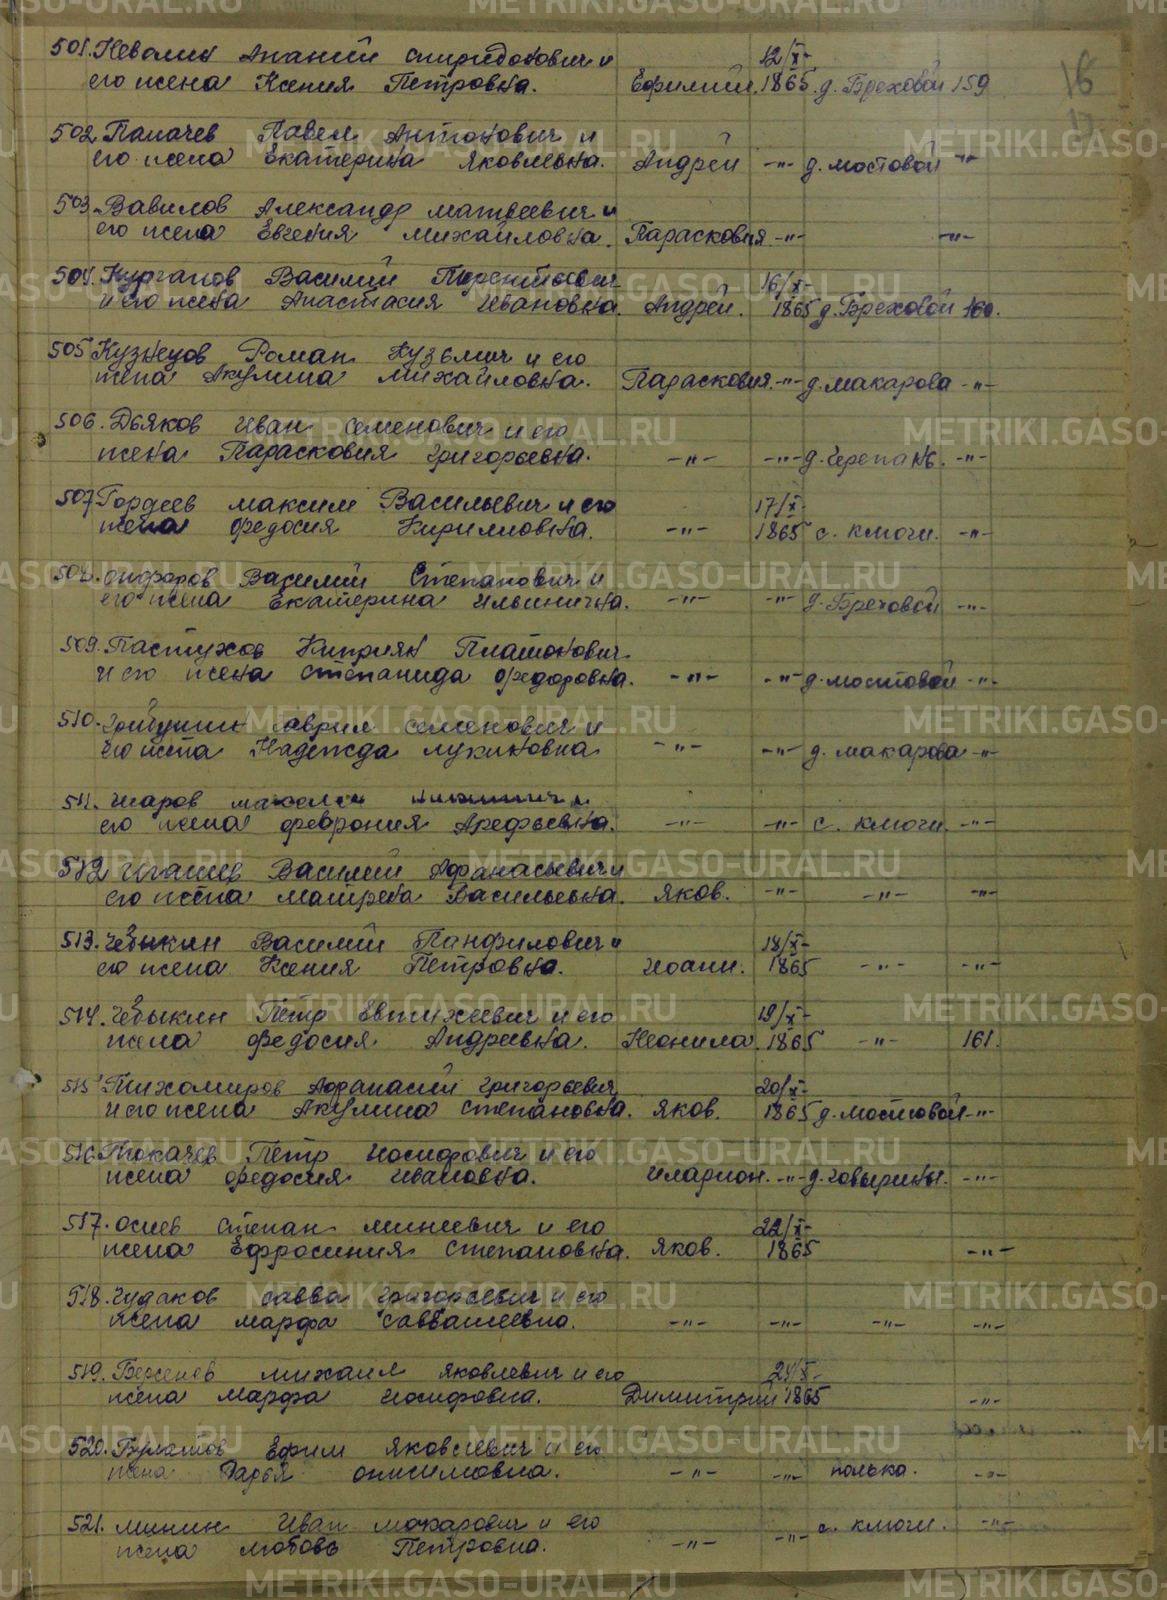 16
501. Невалин Ананий Спиридонович и 12/X-
его жена Ксения Петровна. Ефимий. 1865. д. Бреховой 159
502. Папачев Павел Антонович и
его жена Екатерина Яковлевна. Андрей -"- д. Мостовой -"-
503. Вавилов Александр Матвеевич и
его жена Евгения Михайловна. Парасковия -"- -"-
504. Курганов Василий Терентьевич 16/X-
и его жена Анастасия Ивановна. Андрей. 1865 д. Бреховой 160.
505. Кузнецов Роман Кузьмич и его
жена Акулина Михайловна. Парасковия. -"- д. Макарова -"-
506. Дьяков Иван Семенович и его
жена Парасковия Григорьевна. -"- -"- д. Черепань. -"-
507. Гордеев Максим Васильевич и его 17/X-
жена Федосия Кирилловна. -"- 1865 с. Ключи. -"-
508. Василий Степанович и
его жена Екатерина Ильинична. -"- -"- д. Бреховой -"-
509. Пастухов Киприян Платонович
и его жена Степанида Федоровна. -"- -"- д. Мостовой -"-
510. Гаврил Семенович и
его жена Надежда Лукиновна -"- -"- д. Макарова -"-
511. и
его жена Феврония Арефьевна. -"- -"- с. Ключи. -"-
512 Игашев Василий Афанасьевич и
его жена Матрена Васильевна. Яков. -"- -"- -"-
513. Чебыкин Василий Панфилович и 18/X-
его жена Ксения Петровна. Иоанн. 1865 -"- -"-
514. Чебыкин Петр Евтихеевич и его 19/X-
жена Федосия Андреевна. Неонила. 1865 -"- 161.
515 Тихомиров Афанасий Григорьевич 20/X-
и его жена Акулина Степановна. Яков. 1865 д. Мостовой -"-
516 Токачев Петр Иосифович и его
жена Федосия Ивановна. Иларион. -"- д. Говырины. -"-
517. Осиев Степан Минеевич и его 22/X-
жена Ефросиния Степановна. Яков. 1865 -"-
518. Чудаков Савва Григорьевич и его
жена Марфа Савватеевна. -"- -"- -"- -"-
519. Берсенев Михаил Яковлевич и его 24/X-
жена Марфа Иосифовна. Димитрий 1865 -"-
520. Булатов Ефим Яковлевич и его
жена Дарья Онисимовна. -"- -"- полька. -"-
521. Минин Иван Макарович и его с. Ключи. -"-
жена Любовь Петровна. -"- -"-
METRIKI.GASO-URAL.RU